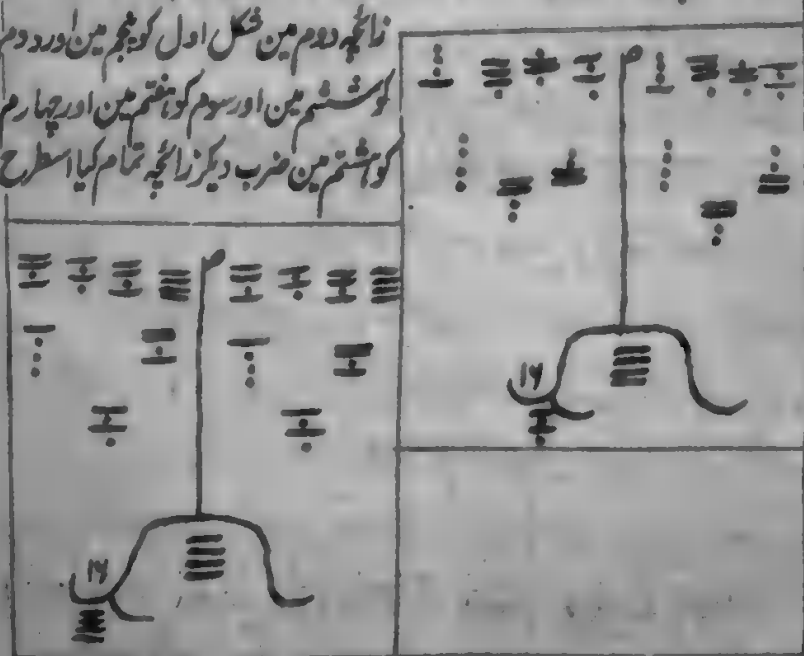 زائچہ دوم مین شکل اول کو پنجم مین اور دوم
کو ششم مین اور سوم کو ہفتم مین اور چہارم
کو ہشتم مین ضرب دیکر زائچہ تمام کیا اسطرح
۱۶
۱۶